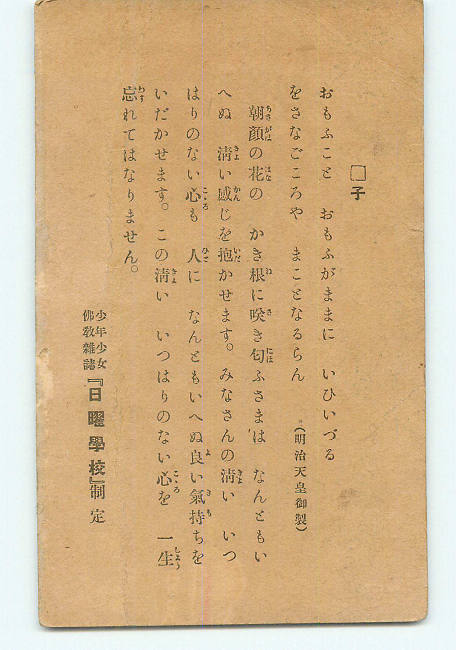 □子
おもふこと おもふがままに いひいづる
をさなごころや まことなるらん
（明治天皇御製）
朝顔の花の かき根に咲き匂ふさまは なんともい
へぬ 淸い感じを抱かせます。みなさんの淸い いつ
はりのない心も 人に なんともいへぬ良い氣持ちを
いだかせます。この淸い いつはりのない心を 一生
忘れてはなりません。
少年少女
佛教雜誌
『日曜學校』制定